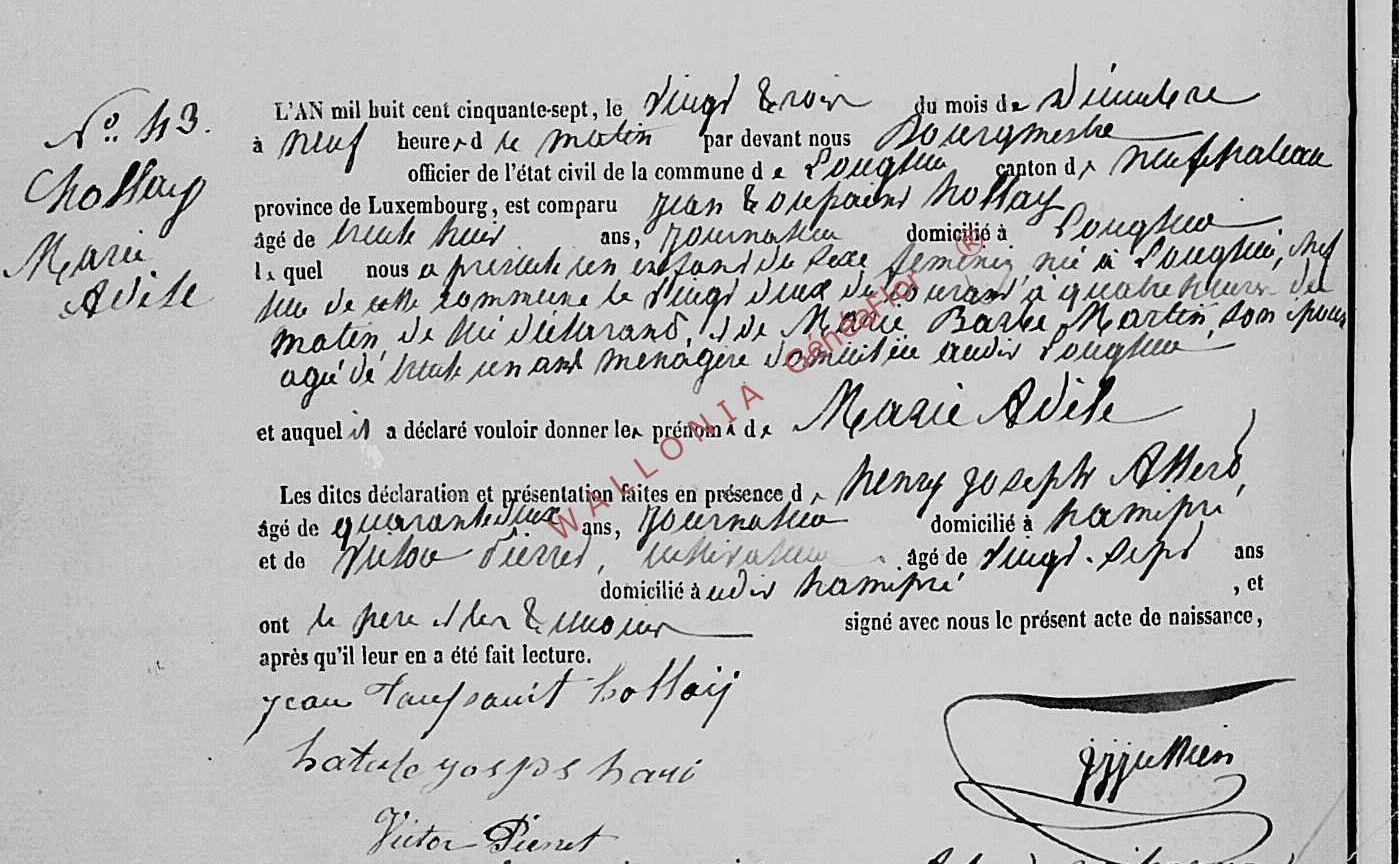 N° 43.
hollay
Marie
Adile
L'AN mil huit cent cinquante-sept, le vingt trois du mois de Décembre
à neuf heures d u matin par devant nous Bourgmestre
officier de l'état civil de la commune de Longlier canton de neufchateau
province de Luxembourg, est comparu jean Toussaint hollay
âgé de trente huit ans, journalier domicilié à Longlier
lequel nous a présenté un enfant du sexe féminin, née à Longlier,
de cette commune le vingt deux du courant à quatre heures du
matin, de lui déclarant, et de Marie Barbe Martin, son épouse
agée de trente un ans ménagère domiciliée audit Longlier
et auquel il a déclaré vouloir donner les prénoms de Marie Adile
Les dites déclaration et présentation faites en présence de henry joseph
âgé de quarante deux ans, journalier domicilié à hamipré
et de Victor Pierret, cultivateur âgé de vingt-sept ans
domicilié audit hamipré , et
ont le père et les témoins signé avec nous le présent acte de naissance,
après qu'il leur en a été fait lecture.
jean Toussaint hollaij
Victor Pierret
WALLONIA GénéaFlor ®